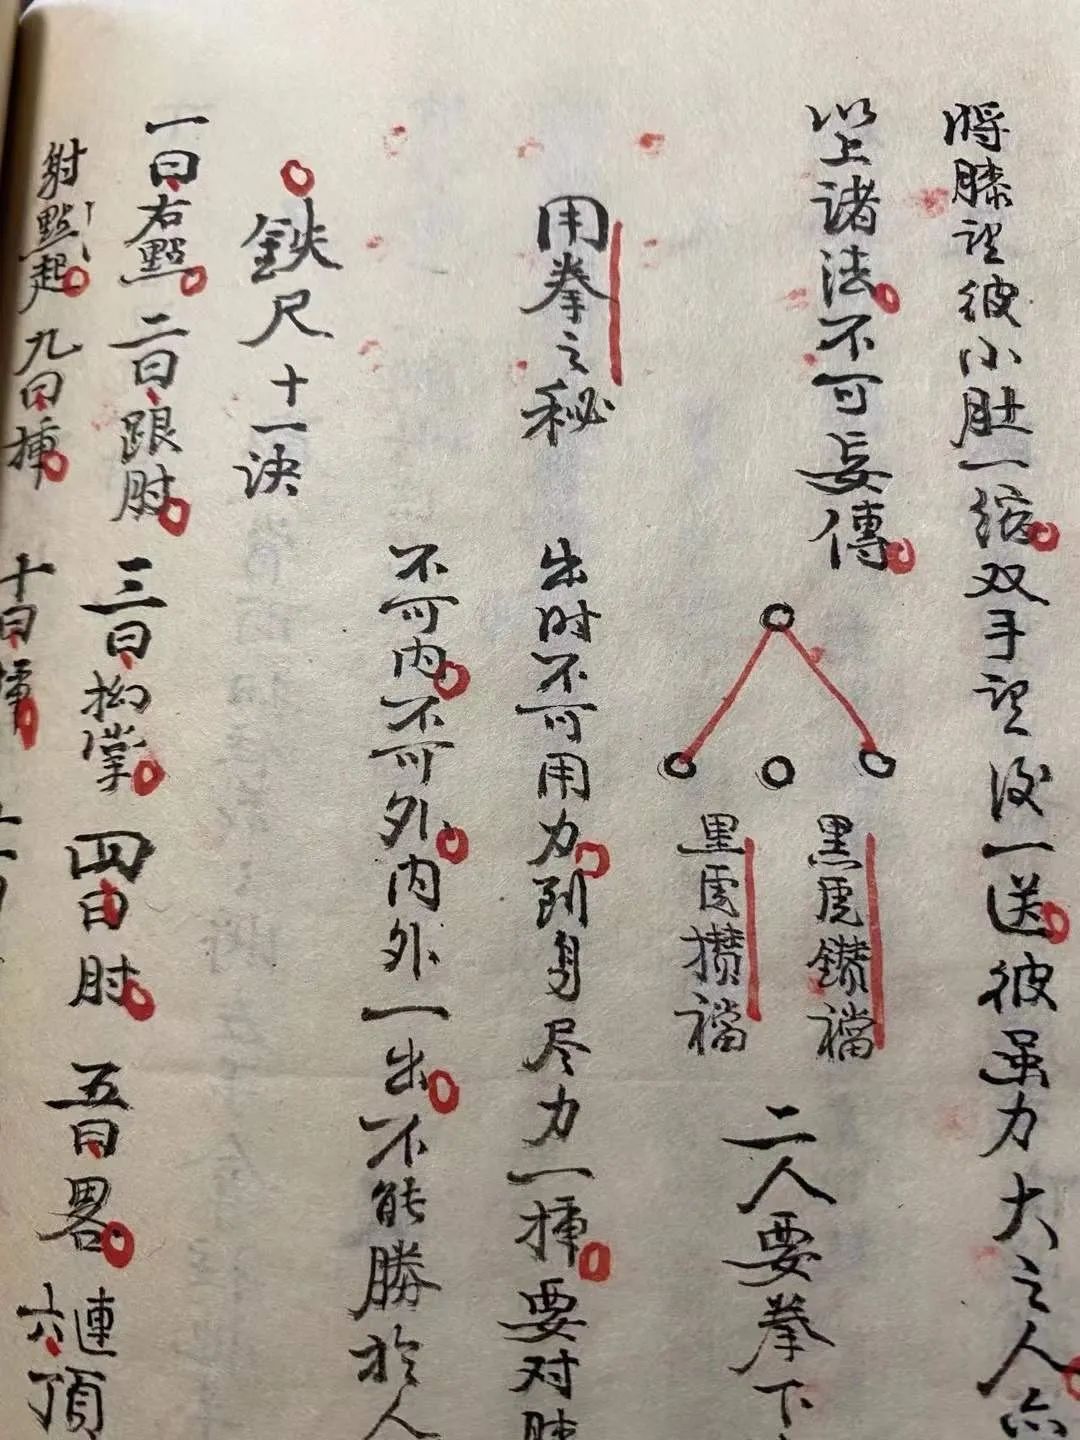 將膝望彼小肚一縮双手望後一送彼虽力大之人亦
以上诸法不可妄傳
黑虎鑚襠
黑虎攢襠
二人要拳下
用拳之秘
出时不可用力到身尽力一揷要对
不可内不可外内外一出不能勝於人
鈇尺十一决
一曰右點二曰跟肘三曰拗掌四曰肘五曰畧六連頂
射點起九曰揷十曰揷